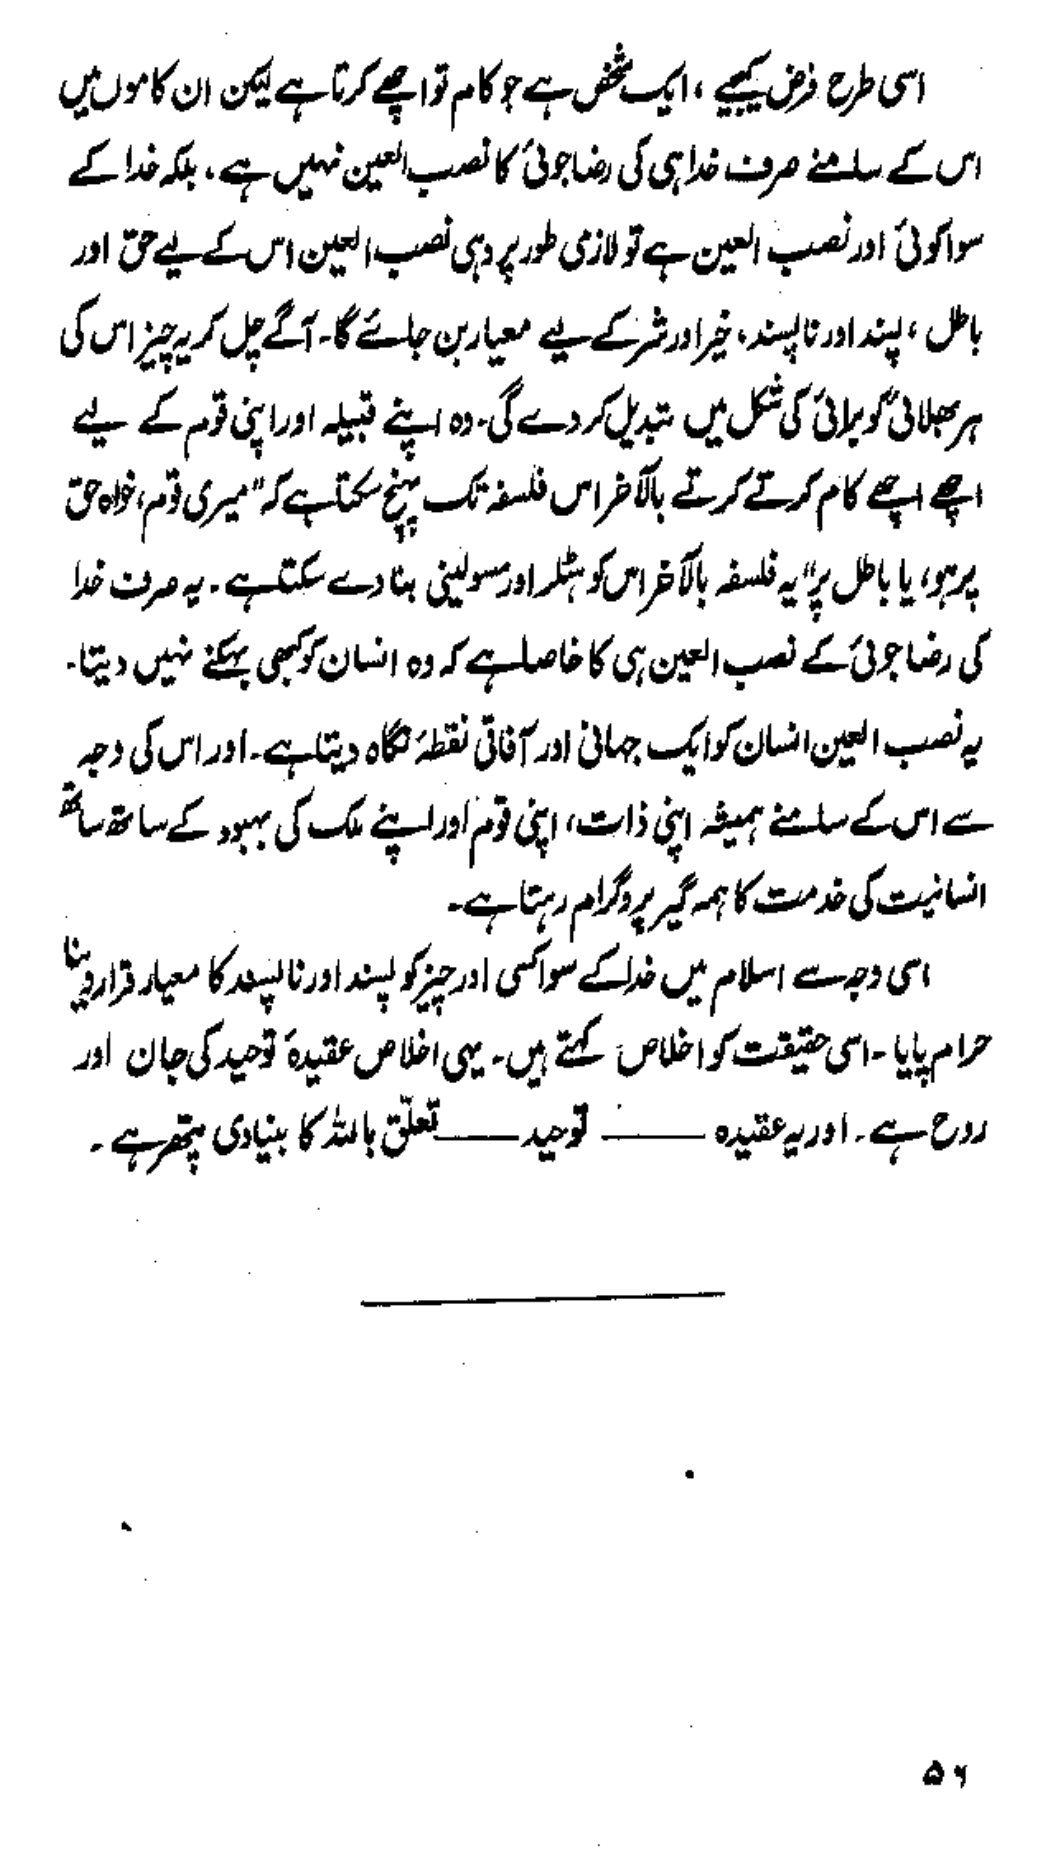 اسی طرح فرض کیجیے ، ایک شخص ہے جو کام تو اچھے کرتا ہے لیکن ان کاموں میں
اس کے سامنے صرف خدا ہی کی رضا جوئی کا نصب العین نہیں ہے ، بلکہ خدا کے
سوا کوئی اور نصب العین ہے تو لازمی طور پر وہی نصب العین اس کے لیے حق اور
باطل ، پسند اور ناپسند ، خیر اور شر کے لیے معیار بن جائے گا۔ آگے چل کر یہ چیز اس کی
ہر بھلائی کو برائی کی شکل میں تبدیل کر دے گی۔ وہ اپنے قبیلہ اور اپنی قوم کے لیے
اچھے اچھے کام کرتے کرتے بالآخر اس فلسفہ تک پہنچ سکتا ہے کہ "میری قوم، خواہ حق
پر ہو، یا باطل پر" یہ فلسفہ بالآخر اس کو ہٹلر اور مسولینی بنا دے سکتا ہے ۔ یہ صرف خدا
کی رضا جوئی کے نصب العین ہی کا خاصا ہے کہ وہ انسان کو کبھی بہکنے نہیں دیتا۔
یہ نصب العین انسان کو ایک جہانی اور آفاقی نقطۂ نگاہ دیتا ہے۔ اور اس کی وجہ
سے اس کے سامنے ہمیشہ اپنی ذات، اپنی قوم اور اپنے ملک کی بہبود کے ساتھ ساتھ
انسانیت کی خدمت کا ہمہ گیر پروگرام رہتا ہے۔
اسی وجہ سے اسلام میں خدا کے سوا کسی اور چیز کو پسند اور ناپسند کا معیار قرار دینا
حرام پایا ۔ اسی حقیقت کو اخلاص کہتے ہیں۔ یہی اخلاص عقیدۂ توحید کی جان اور
روح ہے ۔ اور یہ عقیدہ ــــــ توحید ــــــ تعلّق باللہ کا بنیادی پتھر ہے ۔
۵۶